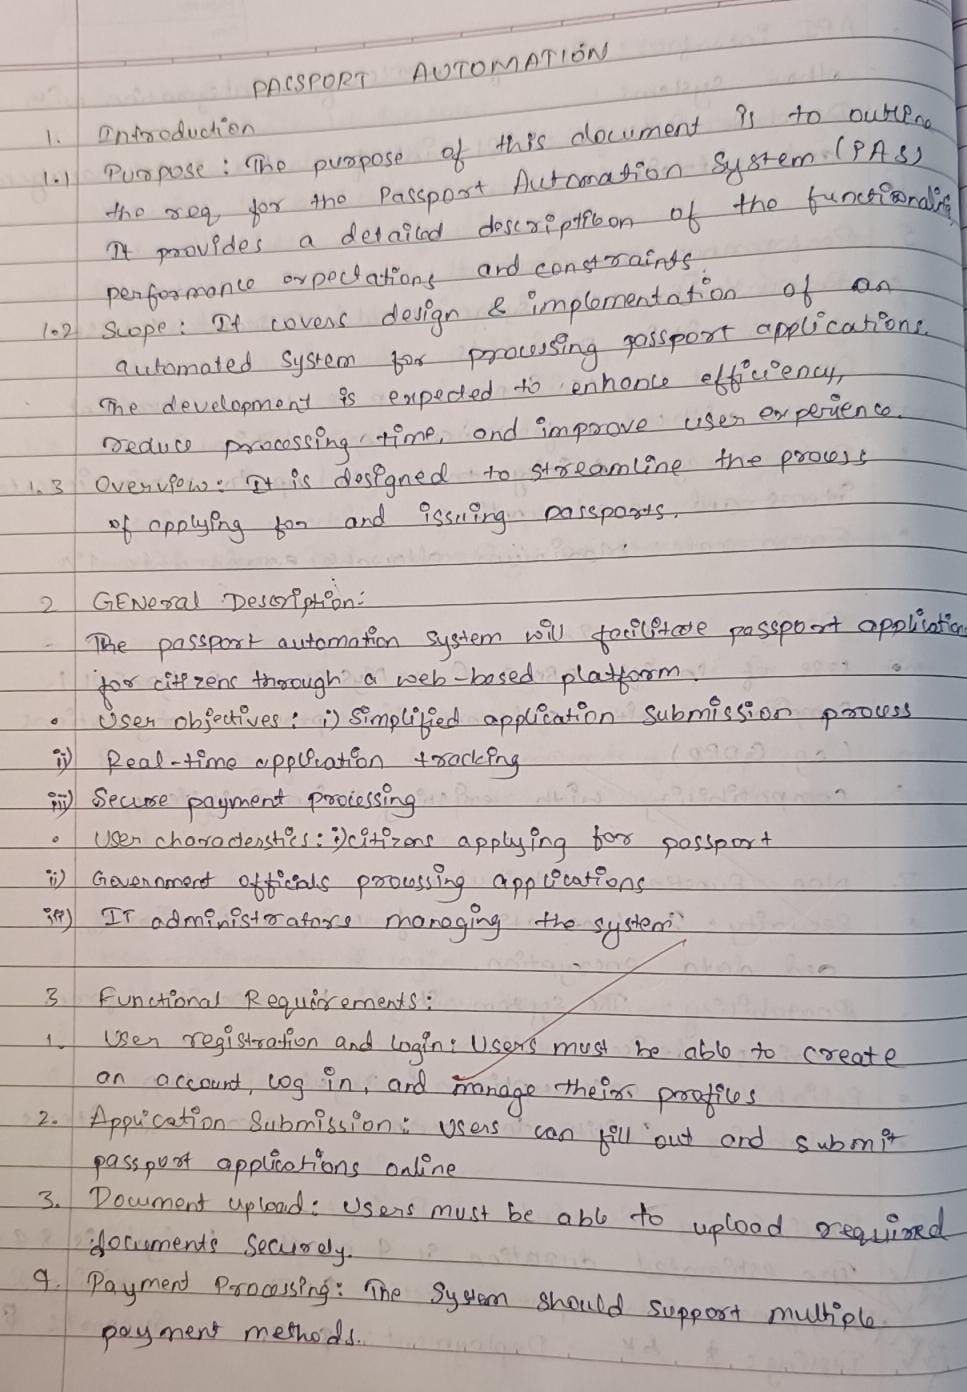 PASSPORT AUTOMATION
1. Introduction
1.1 Purpose: The purpose of this document is to outline
the req, for the Passport Automation System (PAS)
It provides a detailed description of the functionality
performance expectations and constraints.
1.2 Scope: It covers design & implementation of an
automated system for processing passport applications.
The development is expected to enhance efficiency,
reduce processing time, and improve user experience.
1.3 Overview: It is designed to streamline the process
of applying for and issuing passports.
2 GENeral Description:
- The passport automation system will facilitate passport application
for citizens through a web-based platform.
• User objectives: i) Simplified application submission process
ii) Real-time application tracking
iii) Secure payment processing
• User characterstics: i) citizens applying for passport
ii) Government officials processing applications
iii) IT administrators managing the system
3 Functional Requirements:
1. User registration and login: Users must be able to create
an account, log in, and manage their profiles
2. Application Submission: Users can fill out and submit
passport applications online
3. Document upload: Users must be able to upload required
documents securely.
4. Payment Processing: The System should support multiple
payment methods.